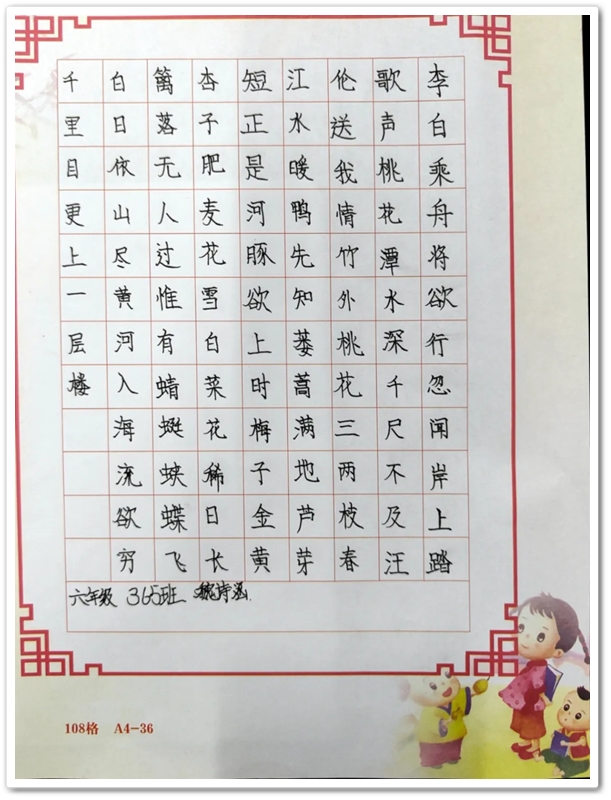 李白乘舟将欲行忽闻岸上踏
歌声桃花潭水深千尺不及汪
伦送我情竹外桃花三两枝春
江水暖鸭先知蒌蒿满地芦芽
短正是河豚欲上时梅子金黄
杏子肥麦花雪白菜花稀日长
篱落无人过惟有蜻蜓蛱蝶飞
白日依山尽黄河入海流欲穷
千里目更上一层楼
六年级 365班 魏诗涵
108格 A4-36